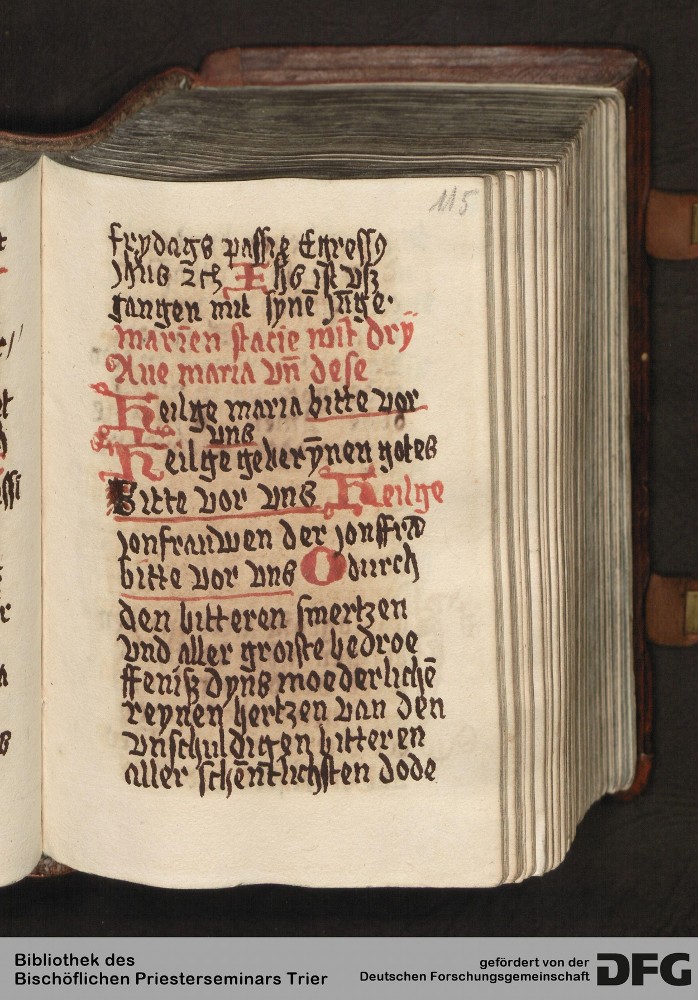 115
frydags passie Egressꝯ
Jhus ꝛcꝫ Ihs ist vsz
gangen mit synē Jūge·
marien stacie mit drÿ
Aue maria vn̄ dese
Heilge maria bitte vor
vns
Heilge geberȳnen gotes
Bitte vor vns Heilge
jonfrauwen der jonffrā
bitte vor vns O durch
den bitteren smertzen
vnd aller groiste bedroe
ffenisz dyns moederlichē
reynen hertzen van den
vnschuldigen bitteren
aller schentlichsten dode
Bibliothek des
Bischöflichen Priesterseminars Trier
gefördert von der
Deutschen Forschungsgemeinschaft DFG